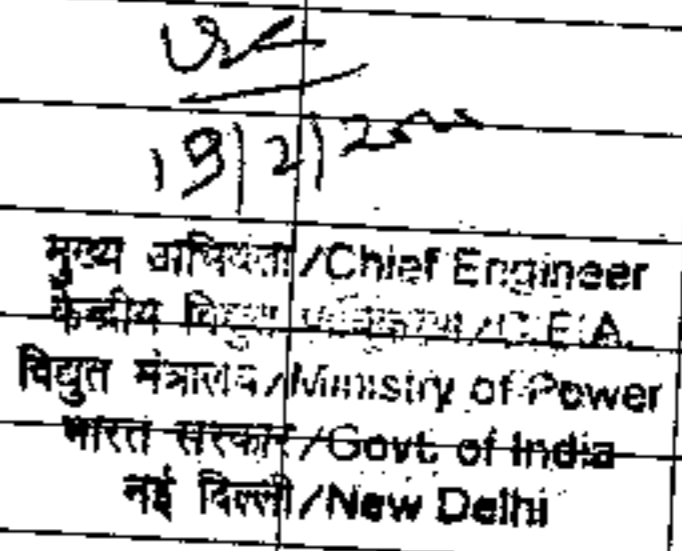 19/2/2000
मुख्य अभियंता/Chief Engineer
केन्द्रीय विद्युत प्राधिकरण/C.E.A.
विद्युत मंत्रालय/Ministry of Power
भारत सरकार/Govt. of India
नई दिल्ली/New Delhi